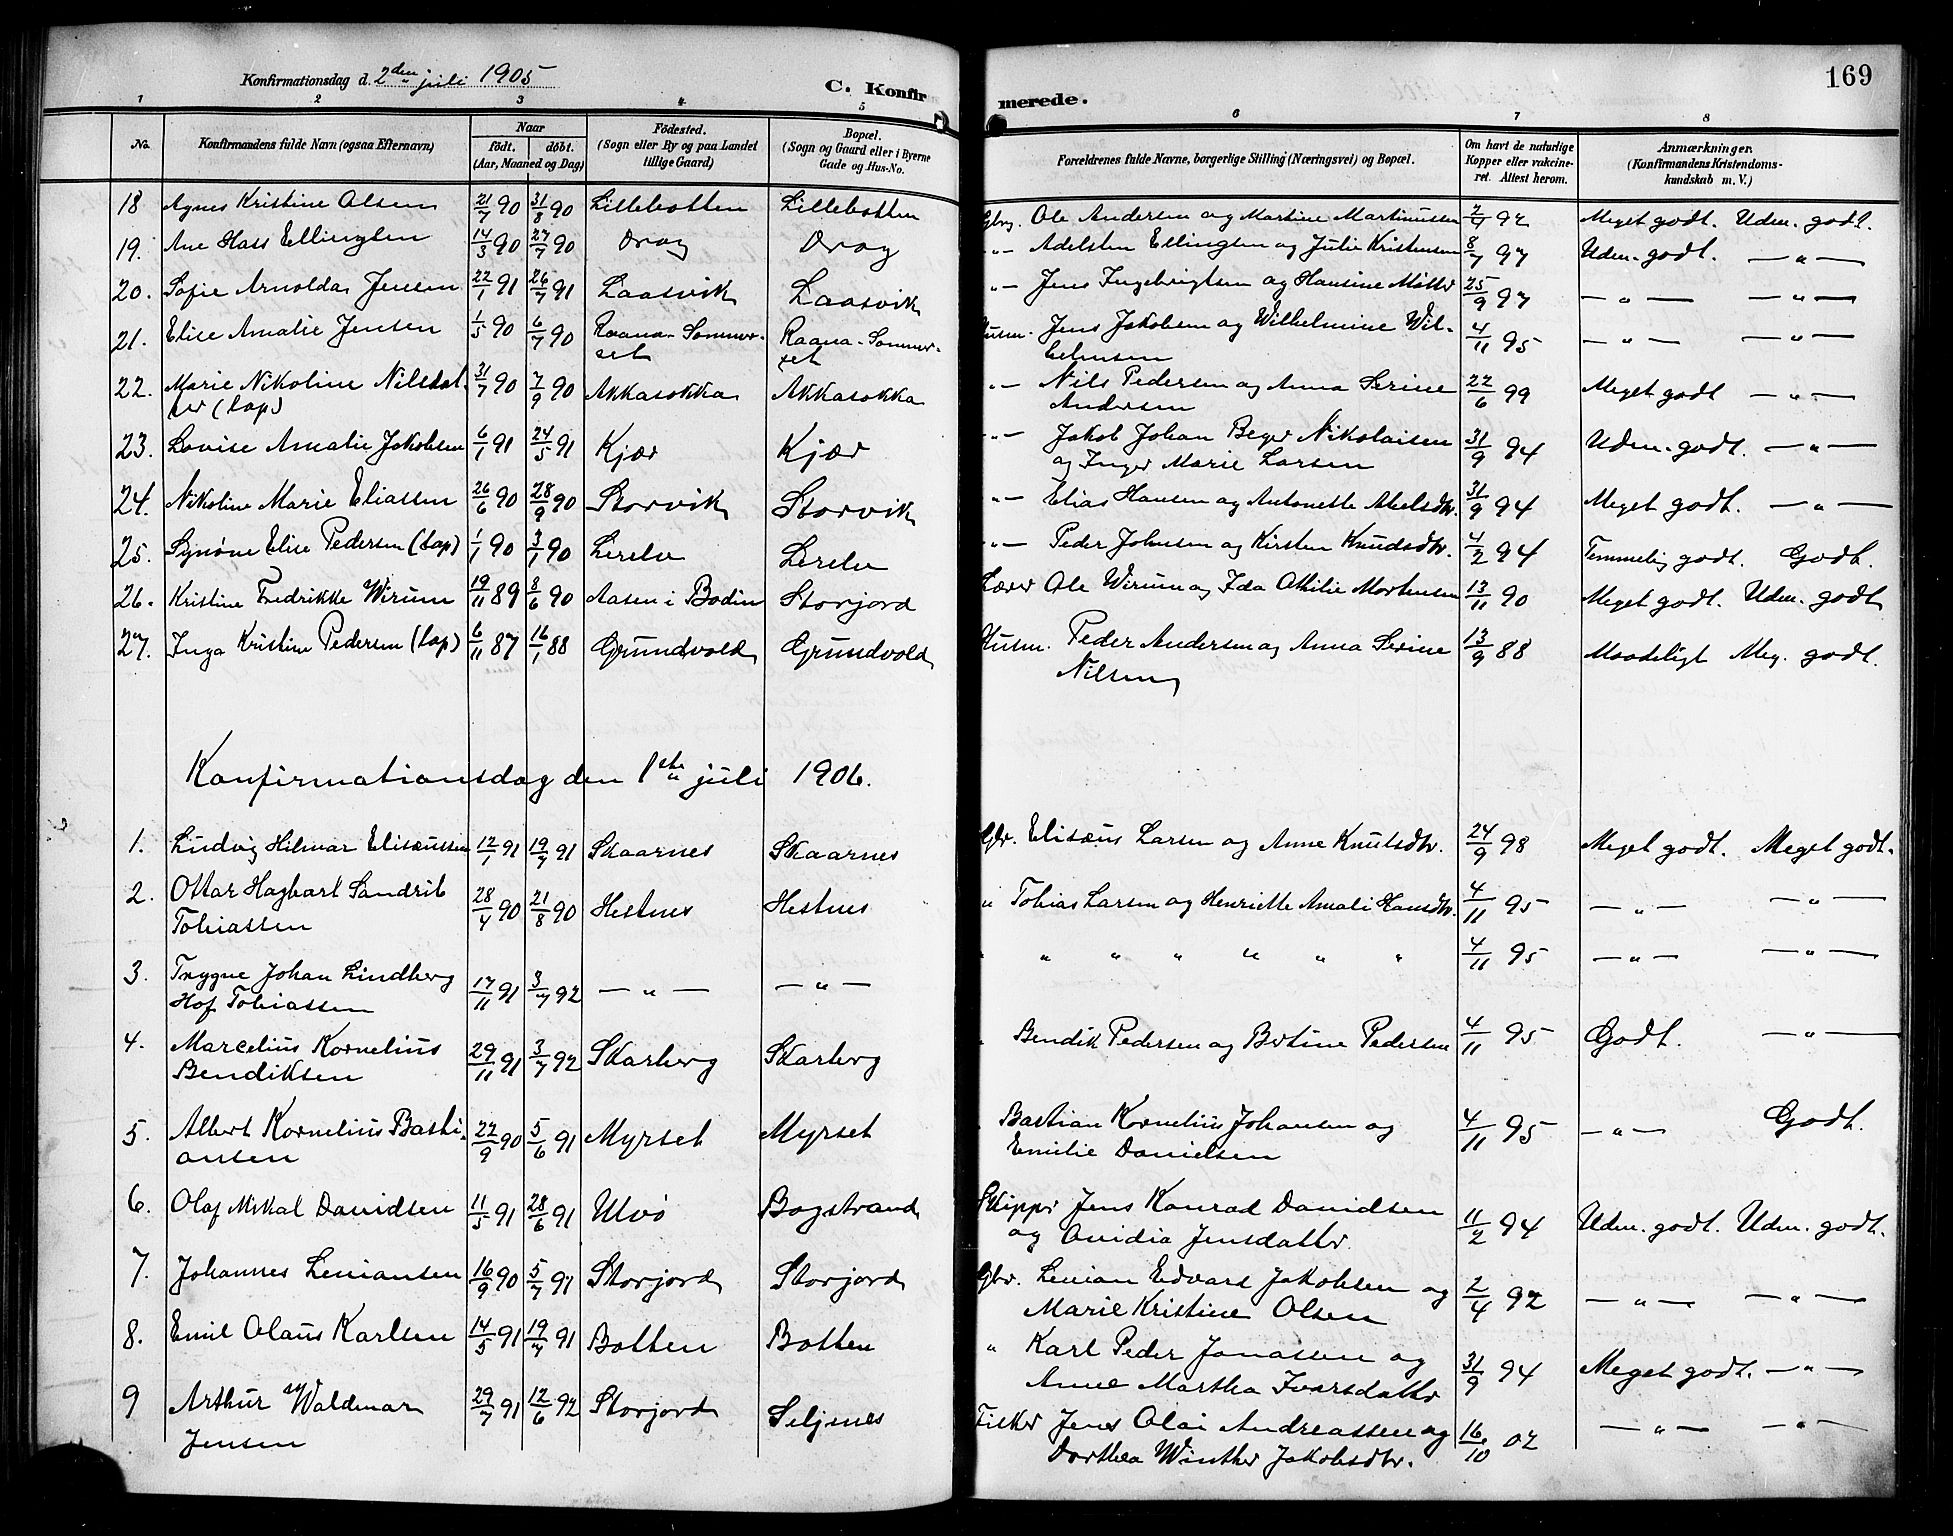 169
Konfirmationsdag d. 2den juli 1905
C. Konfirmerede.
1 2 3 4 5 6 7 8
No. Konfirmandens fulde Navn (ogsaa Efternavn) Naar født. døbt. (Aar, Maaned og Dag) Fødested. (Sogn eller By og paa Landet tillige Gaard) Bopæl. (Sogn og Gaard eller i Byerne Gade og Hus-No. Forældrenes fulde Navne, borgerlige Stilling (Næringsvei) og Bopæl. Om havt de naturlige Kopper eller vakcineret. Attest herom. Anmærkninger. (Konfirmandens Kristendomskundskab m. V.)
18 Agnes Kristine Olsen 21/7 90 31/8 90 Lillebotten Lillebotten Gbrg. Ole Andersen og Martine Martinussen 2/4 92 Meget godt. Uden. godt.
19. Ane Hass Ellingsen 14/3 90 27/7 90 Drag Drag -"- Adelsten Ellingsen og Julie Kristensen 8/7 97 Uden. godt. -"-
20. Sofie Arnolda Jensen 22/1 91 26/7 91 Laasvik Laasvik -"- Jens Ingebrigtsen og Hansine Mølle 25/9 97 -"- -"-
21. Elise Amalie Jensen 1/5 90 6/7 90 Raana-Sommer- Raana-Sommer- Husm. Jens Jakobsen og Wilhelmine Wil- 4/11 95 -"- -"-
set set helmsen
22. Marie Nikoline Nilsdat- 31/7 90 7/9 90 Akkasokka Akkasokka -"- Nils Pedersen og Anna Serine 22/6 99 Meget godt -"-
ter (lap) Andersen
23. Lovise Amalie Jakobsen 6/1 91 24/5 91 Kjær Kjær -"- Jakob Johan Beger Nikolaisen 31/9 94 Uden. godt. -"-
og Inger Marie Larsen
24. Nikoline Marie Eliassen 26/6 90 28/9 90 Storvik Storvik -"- Elias Hansen og Antonette Abelsdtr. 31/9 94 Meget godt. -"-
25. Synøne Elise Pedersen (lap) 1/1 90 3/1 90 Lerelv Lerelv -"- Peder Johnsen og Kirsten Knudsdtr. 4/2 94 Temmelig godt. Godt.
26. Kristine Fredrikke Wirum 19/11 89 8/6 90 Aasen i Bodin Storjord Lærer Ole Wirum og Ida Othilie Mortensen 13/11 90 Meget godt. Uden. godt
27. Inga Kristine Pedersen (lap) 6/11 87 16/1 88 Grundvold Grundvold Husm. Peder Andersen og Anna Serine 13/9 88 Maadeligt Meg. godt.
Nilsen
Konfirmationsdag den 1ste juli 1906.
1. Ludvig Hilmar Elisæussen 12/1 91 19/7 91 Skaarnes Skaarnes Gbr. Elisæus Larsen og Anne Knutsdtr. 24/9 98 Meget godt. Meget godt.
2. Ottar Hagbart Sandrib 28/4 90 21/8 90 Hestnes Hestnes " Tobias Larsen og Henriette Amali Hansdtr. 4/11 95 -"- -"-
Tobiassen
3. Trygve Johan Lindberg 17/11 91 3/7 92 -"- -"- " " " " " " " 4/11 95 -"- -"-
Hof Tobiassen
4. Marcelius Kornelius 29/11 91 3/7 92 Skarberg Skarberg " Bendik Pedersen og Betine Pedersen 4/11 95 Godt. -"-
Bendiksen
5. Albert Kornelius Basti- 22/9 90 5/6 91 Myrset Myrset " Bastian Kornelius Johansen og 4/11 95 -"- Godt.
ansen Emilie Danielsen
6. Olaf Mikal Davidsen 11/5 91 28/6 91 Ulvø Bogstrand Skipper Jens Konrad Davidsen 11/2 94 Uden. godt. Uden. godt.
og Ovidia Jensdatter
7. Johannes Leviansen 16/9 90 5/7 91 Storjord Storjord Gbr. Levian Edvard Jakobsen og 2/4 92 -"- -"-
Marie Kristine Olsen
8. Emil Olaus Karlsen 14/5 91 19/7 91 Botten Botten " Karl Peder Jonassen og 31/9 94 Meget godt. -"-
Anne Martha Ivarsdatter
9 Arthur Waldemar 29/7 91 12/6 92 Storjord Seljenes Fisker Jens Olai Andreassen og 16/10 02 -"- -"-
Jensen Dorthea Winther Jakobsdtr.